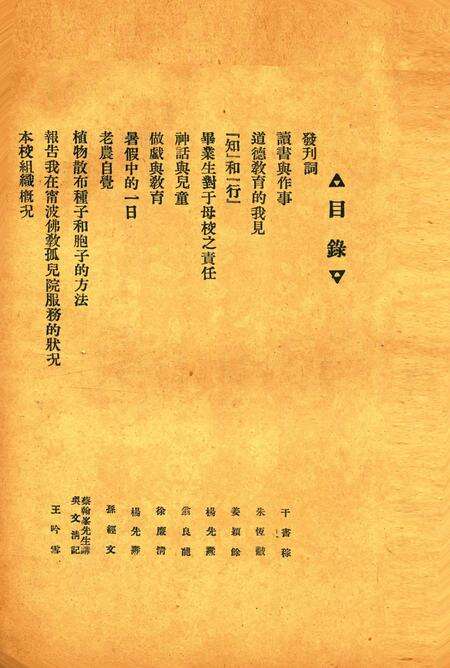 目錄
發刊詞
讀書與作事 干書稼
道德敎育的我見 朱恆
「知」和「行」 姜穎餘
畢業生對于母校之責任 楊先
神話與兒童 翁良
做戲與敎育 徐應清
暑假中的一日 楊先壽
老農自覺 孫經文
植物散布種子和胞子的方法 蔡翰峯先生講 吳文清記
報告我在甯波佛敎孤兒院服務的狀况 王吟雪
本校組織槪况